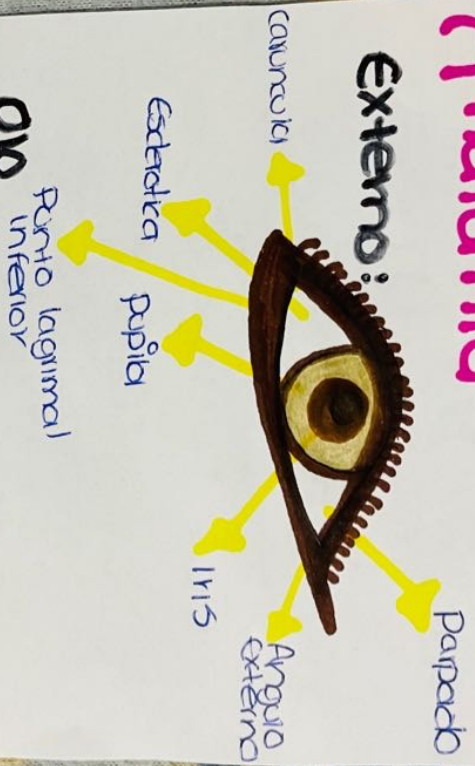 Externo:
Caruncula
Esclerotica
Punto lagrimal
inferior
pupila
Iris
Angulo
externo
Parpado